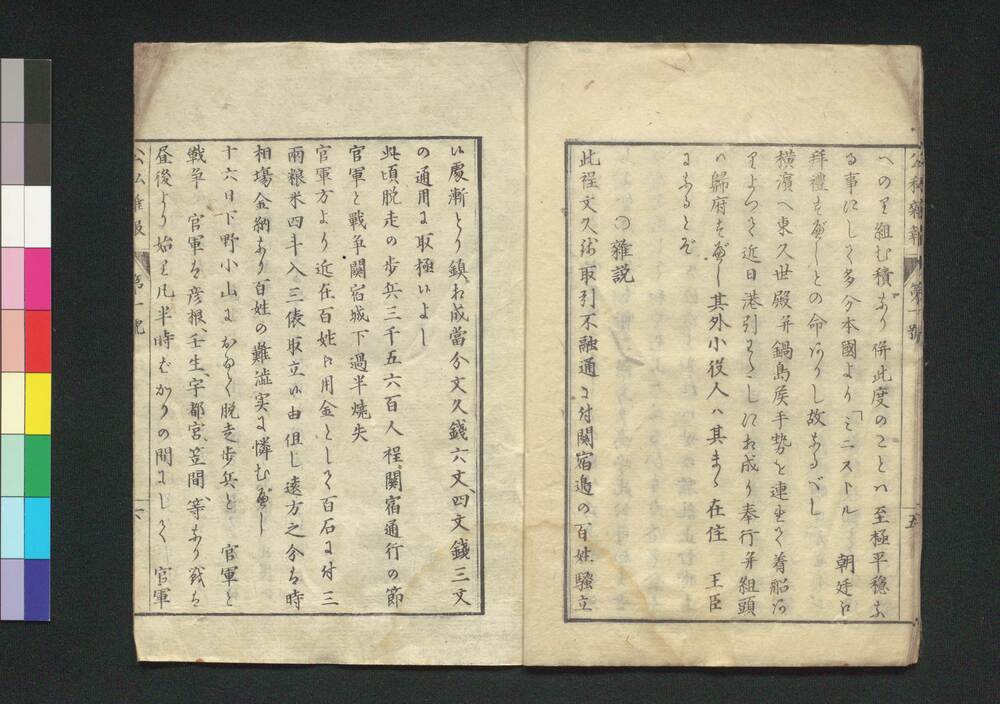 公私雜報 第一號 五
への里組む積あり併此度のことハ至極平穏な
る事にして多分本國より「ミニストル 朝廷江
拜禮をべしとの命ありし故あるべし
横濱へ東久世殿并鍋島矦手勢を連出て着船
りよつて近日港引わたしに相成り奉行并組頭
ハ歸府をべし其外小役人ハ其まゝ在住 王臣
になるとぞ
〇雜説
此程文久錢取引不融通に付関宿邉の百姓騒立
い處漸とり鎮相成當分文久錢六文四文錢三文
の通用に取極いよし
此頃脱走の歩兵三千五六百人程関宿通行の節
官軍と戰爭関宿城下過半燒失
官軍方より近在百姓江用金として百石に付三
兩粮米四斗入三俵取立い由但し遠方之分は時
相塲金納あり百姓の難澁実に憐むべし
十六日下野小山におゐて脱走歩兵と 官軍と
戰爭 官軍は彦根、壬生、宇都宮、笠間、等あり戰は
昼後より始り凡半時ばかりの間にして 官軍
公私雜報 第一號 六